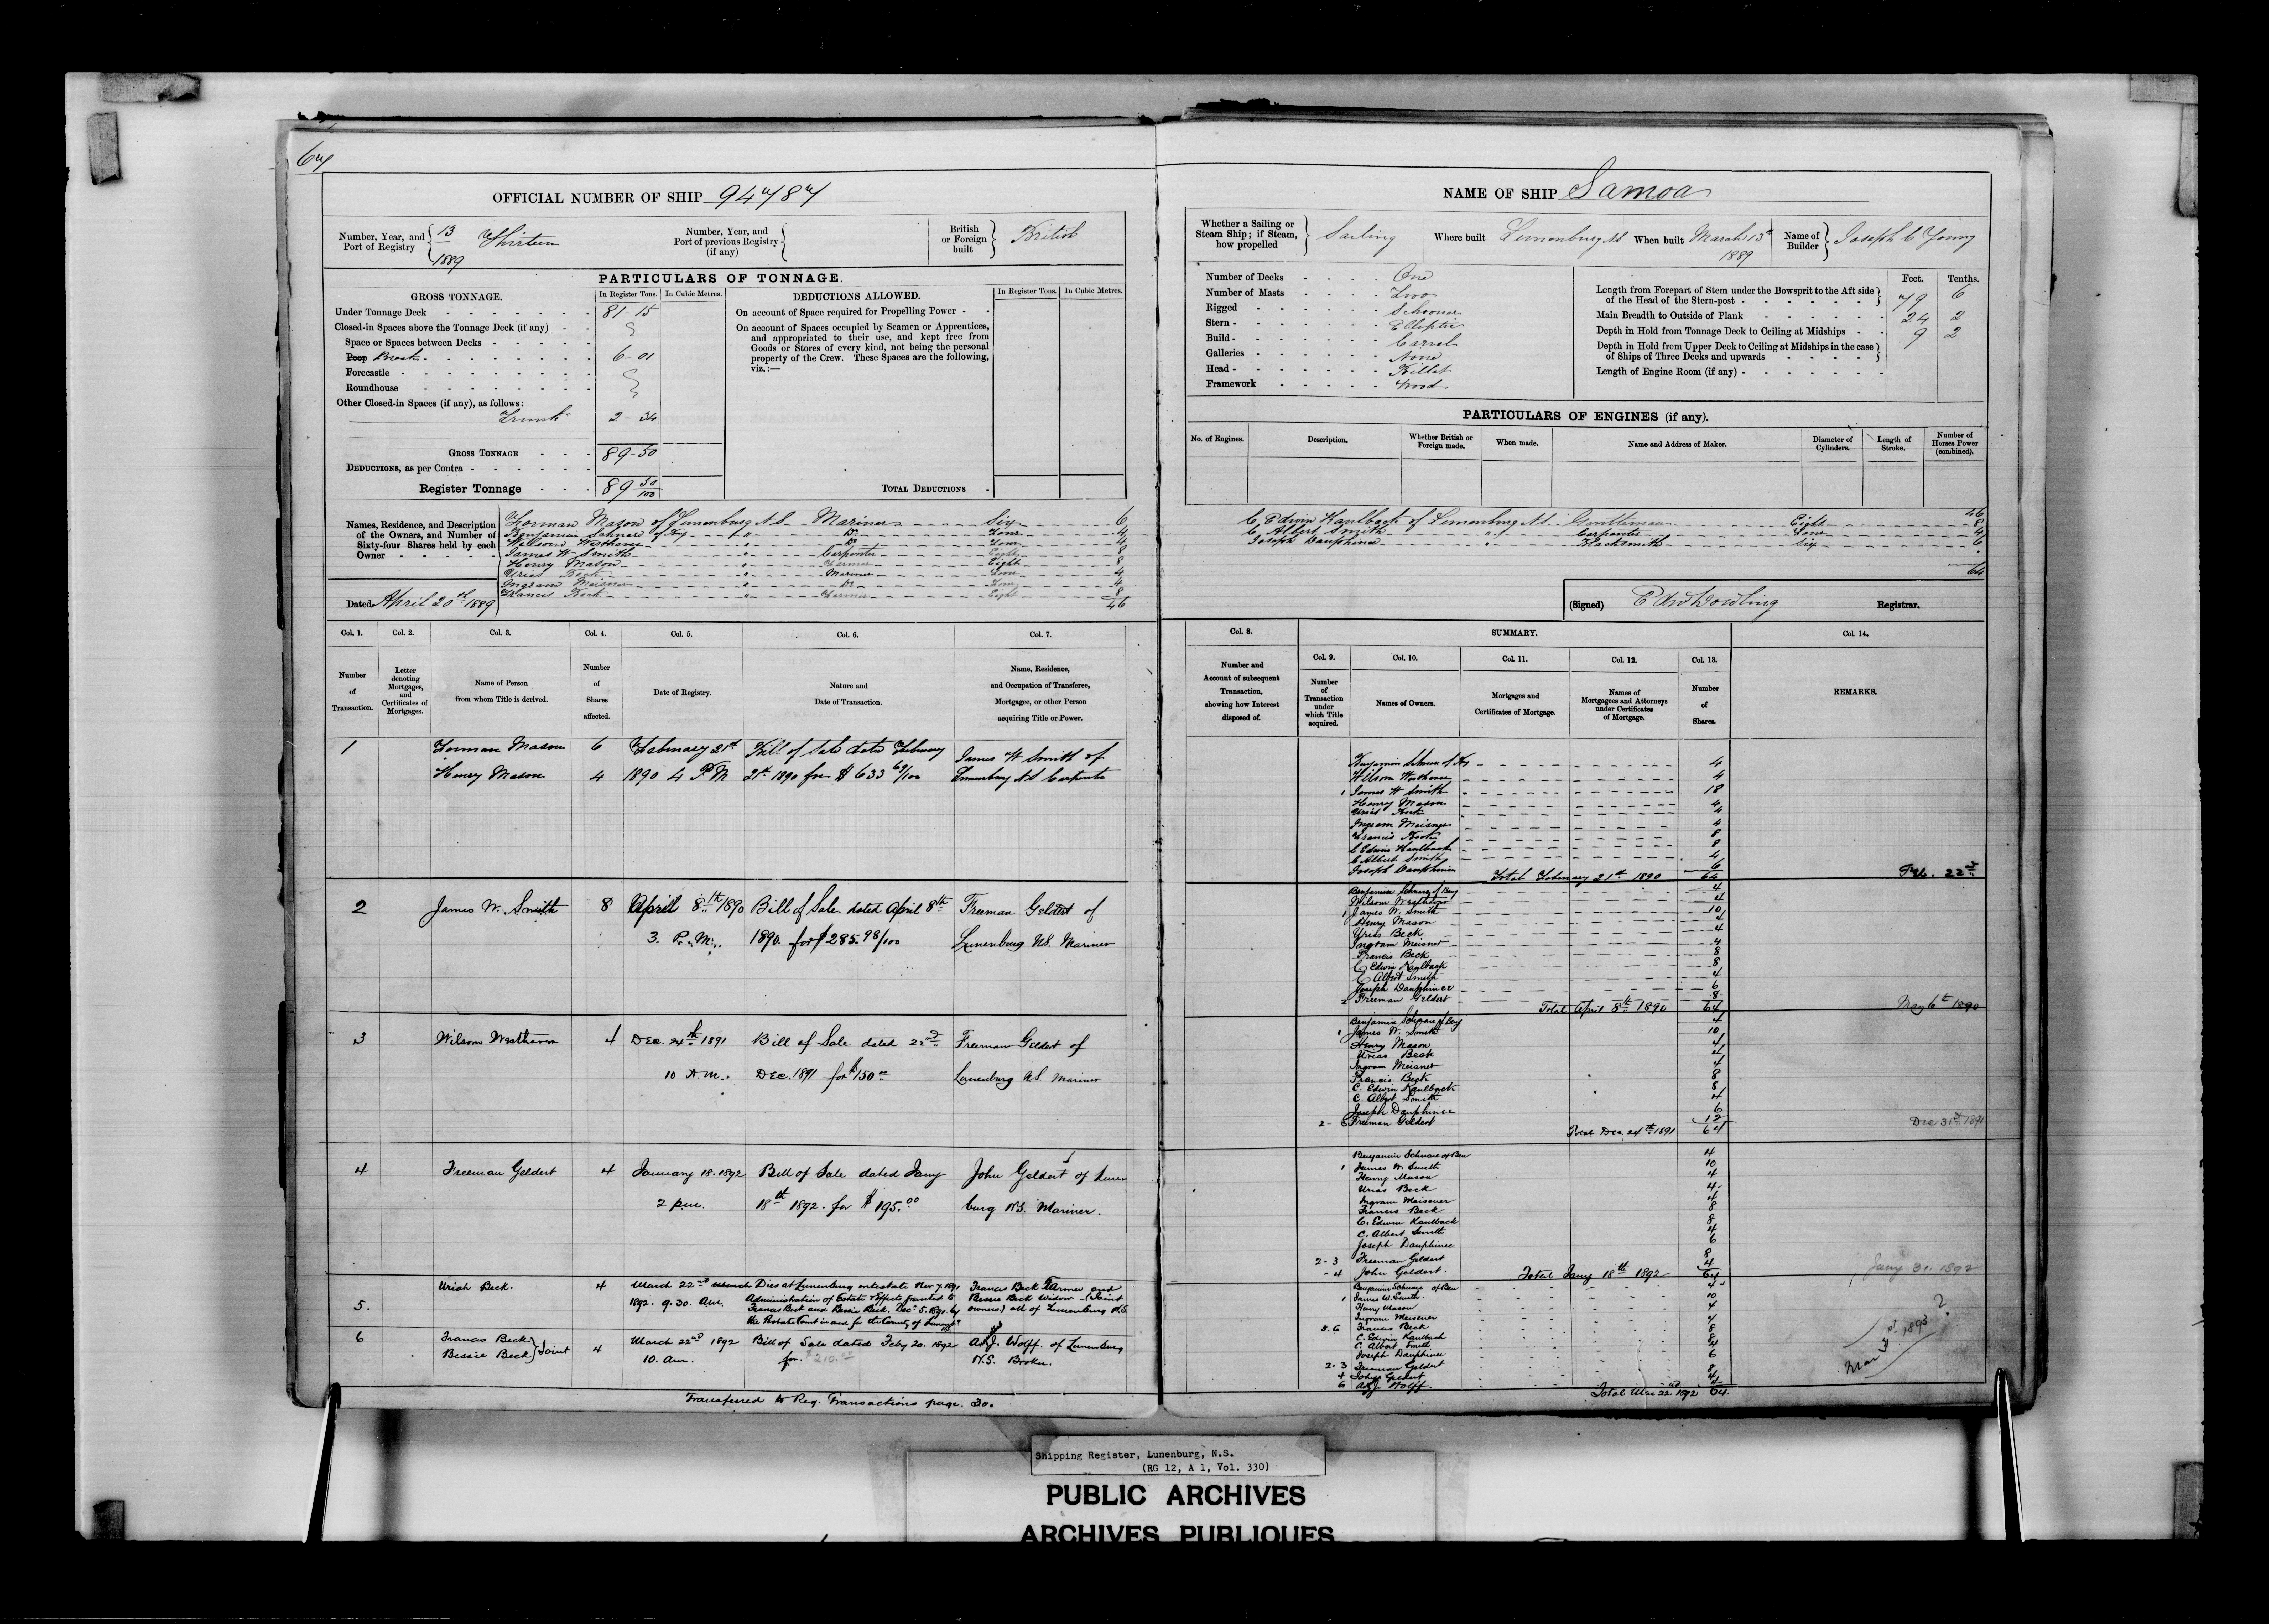 67
OFFICIAL NUMBER OF SHIP 94787
Number, Year, and Port of Registry 13/1889 Thirteen
Number, Year, and Port of previous Registry (if any)
British or Foreign built British
PARTICULARS OF TONNAGE.
GROSS TONNAGE. In Register Tons. In Cubic Metres.
Under Tonnage Deck 81-15
Closed-in Spaces above the Tonnage Deck (if any)
Space or Spaces between Decks
Poop Break 6-01
Forecastle
Roundhouse
Other Closed-in Spaces (if any), as follows:
Trunk 2-34
GROSS TONNAGE 89-50
DEDUCTIONS, as per Contra
Register Tonnage 89 50/100
DEDUCTIONS ALLOWED. In Register Tons. In Cubic Metres.
On account of Space required for Propelling Power
On account of Spaces occupied by Seamen or Apprentices,
and appropriated to their use, and kept free from
Goods or Stores of every kind, not being the personal
property of the Crew. These Spaces are the following,
viz.:—
TOTAL DEDUCTIONS
Names, Residence, and Description
of the Owners, and Number of
Sixty-four Shares held by each
Owner
Forman Mason of Lunenburg N.S. Mariner Six 6
Benjamin Schnare of Hy " Do Four 4
Wilson Westhaver " Do Four 4
James W Smith " Carpenter Eight 8
Henry Mason " Farmer Eight 8
Urias Beck " Mariner Four 4
Ingram Meisner " Do Four 4
Francis Beck " Farmer Eight 8
46
Dated April 20th 1889
Col. 1. Col. 2. Col. 3. Col. 4. Col. 5. Col. 6. Col. 7.
Number of Transaction.
Letter denoting Mortgages, and Certificates of Mortgages.
Name of Person from whom Title is derived.
Number of Shares affected.
Date of Registry.
Nature and Date of Transaction.
Name, Residence, and Occupation of Transferee, Mortgagee, or other Person acquiring Title or Power.
1 Forman Mason 6 February 21st Bill of Sale dated February James W Smith of
Henry Mason 4 1890 4 P.M 21st 1890 for $633 69/100 Lunenburg N.S Carpenter
2 James W. Smith 8 April 8th 1890 Bill of Sale dated April 8th Freeman Geldert of
3. P.M. 1890. for $285.98/100 Lunenburg N.S. Mariner
3 Wilson Westhaver 4 Dec. 24th 1891 Bill of Sale dated 22nd Freeman Geldert of
10 A.M. Dec. 1891 for $150.00 Lunenburg N.S. Mariner
4 Freeman Geldert 4 January 18. 1892 Bill of Sale dated Jany John Geldert of Lunen
2 p.m. 18th 1892. for $195.00 burg N.S. Mariner.
5. Uriah Beck. 4 March 22nd Dies at Lunenburg intestate Nov 7. 1891. Francis Beck Farmer and
1892. 9.30. Am. Administration of Estate & Effects granted to Bessie Beck Widow (Joint
Francis Beck and Bessie Beck. Decr 5. 1891. by owners) all of Lunenburg N.S.
the Probate Court in and for the County of
6 Francis Beck
Bessie Beck } Joint 4 March 22nd 1892 Bill of Sale dated Feby 20. 1892 A.J. Wolff. of Lunenburg
10. Am. for $210.00 N.S. Broker.
Transferred to Reg. Transactions page. 30.
NAME OF SHIP Samoa
Whether a Sailing or Steam Ship; if Steam, how propelled Sailing
Where built Lunenburg N.S
When built March 13th 1889
Name of Builder Joseph C Young
Number of Decks One
Number of Masts Two
Rigged Schooner
Stern Elliptic
Build Carvel
Galleries None
Head Billet
Framework Wood
Feet. Tenths.
Length from Forepart of Stem under the Bowsprit to the Aft side of the Head of the Stern-post 79 6
Main Breadth to Outside of Plank 24 2
Depth in Hold from Tonnage Deck to Ceiling at Midships 9 2
Depth in Hold from Upper Deck to Ceiling at Midships in the case of Ships of Three Decks and upwards
Length of Engine Room (if any)
PARTICULARS OF ENGINES (if any).
No. of Engines. Description. Whether British or Foreign made. When made. Name and Address of Maker. Diameter of Cylinders. Length of Stroke. Number of Horses Power (combined).
46
C. Edwin Kaulback of Lunenburg N.S. Gentleman Eight 8
C. Albert Smith " Carpenter Four 4
Joseph Dauphinee " Blacksmith Six 6
64
(Signed) Edw Dowling Registrar.
Col. 8. SUMMARY. Col. 14.
Col. 9. Col. 10. Col. 11. Col. 12. Col. 13.
Number and Account of subsequent Transaction, showing how Interest disposed of.
Number of Transaction under which Title acquired.
Names of Owners.
Mortgages and Certificates of Mortgage.
Names of Mortgagees and Attorneys under Certificates of Mortgage.
Number of Shares.
REMARKS.
Benjamin Schnare of Hy 4
Wilson Westhaver 4
1 James W Smith 18
Henry Mason 4
Urias Beck 4
Ingram Meisner 4
Francis Beck 8
C Edwin Kaulback 8
C Albert Smith 4
Joseph Dauphinee 6
Total February 21st 1890 64 Feb. 22nd
Benjamin Schnare of Benj 4
Wilson Westhaver 4
1 James W. Smith 10
Henry Mason 4
Urias Beck 4
Ingram Meisner 4
Francis Beck 8
C Edwin Kaulback 8
C Albert Smith 4
Joseph Dauphinee 6
2 Freeman Geldert 8
Total April 8th 1890 64 May 6th 1890
Benjamin Schnare of Benj 4
1 James W. Smith 10
Henry Mason 4
Urias Beck 4
Ingram Meisner 4
Francis Beck 8
C. Edwin Kaulback 8
C. Albert Smith 4
Joseph Dauphinee 6
2-3 Freeman Geldert 12
Total Dec. 24th 1891 64 Dec 31st 1891
Benjamin Schnare of Ben 4
1 James W. Smith 10
Henry Mason 4
Urias Beck 4
Ingram Meisner 4
Francis Beck 8
C. Edwin Kaulback 8
C. Albert Smith 4
Joseph Dauphinee 6
2-3 Freeman Geldert 8
-4 John Geldert. 4
Total Jany 18th 1892 64 Jany 31. 1892
Benjamin Schnare of Ben 4
1 James W. Smith 10
Henry Mason 4
Ingram Meisner 4
5.6 Francis Beck 8
C. Edwin Kaulback 8
C. Albert Smith 4
Joseph Dauphinee 6
2-3 Freeman Geldert 8
4 John Geldert 4
6 A.J. Wolff 4
Total Mar 22nd 1892 64.
Mar 1893 ?
Shipping Register, Lunenburg, N.S.
(RG 12, A 1, Vol. 330)
PUBLIC ARCHIVES
ARCHIVES PUBLIQUES